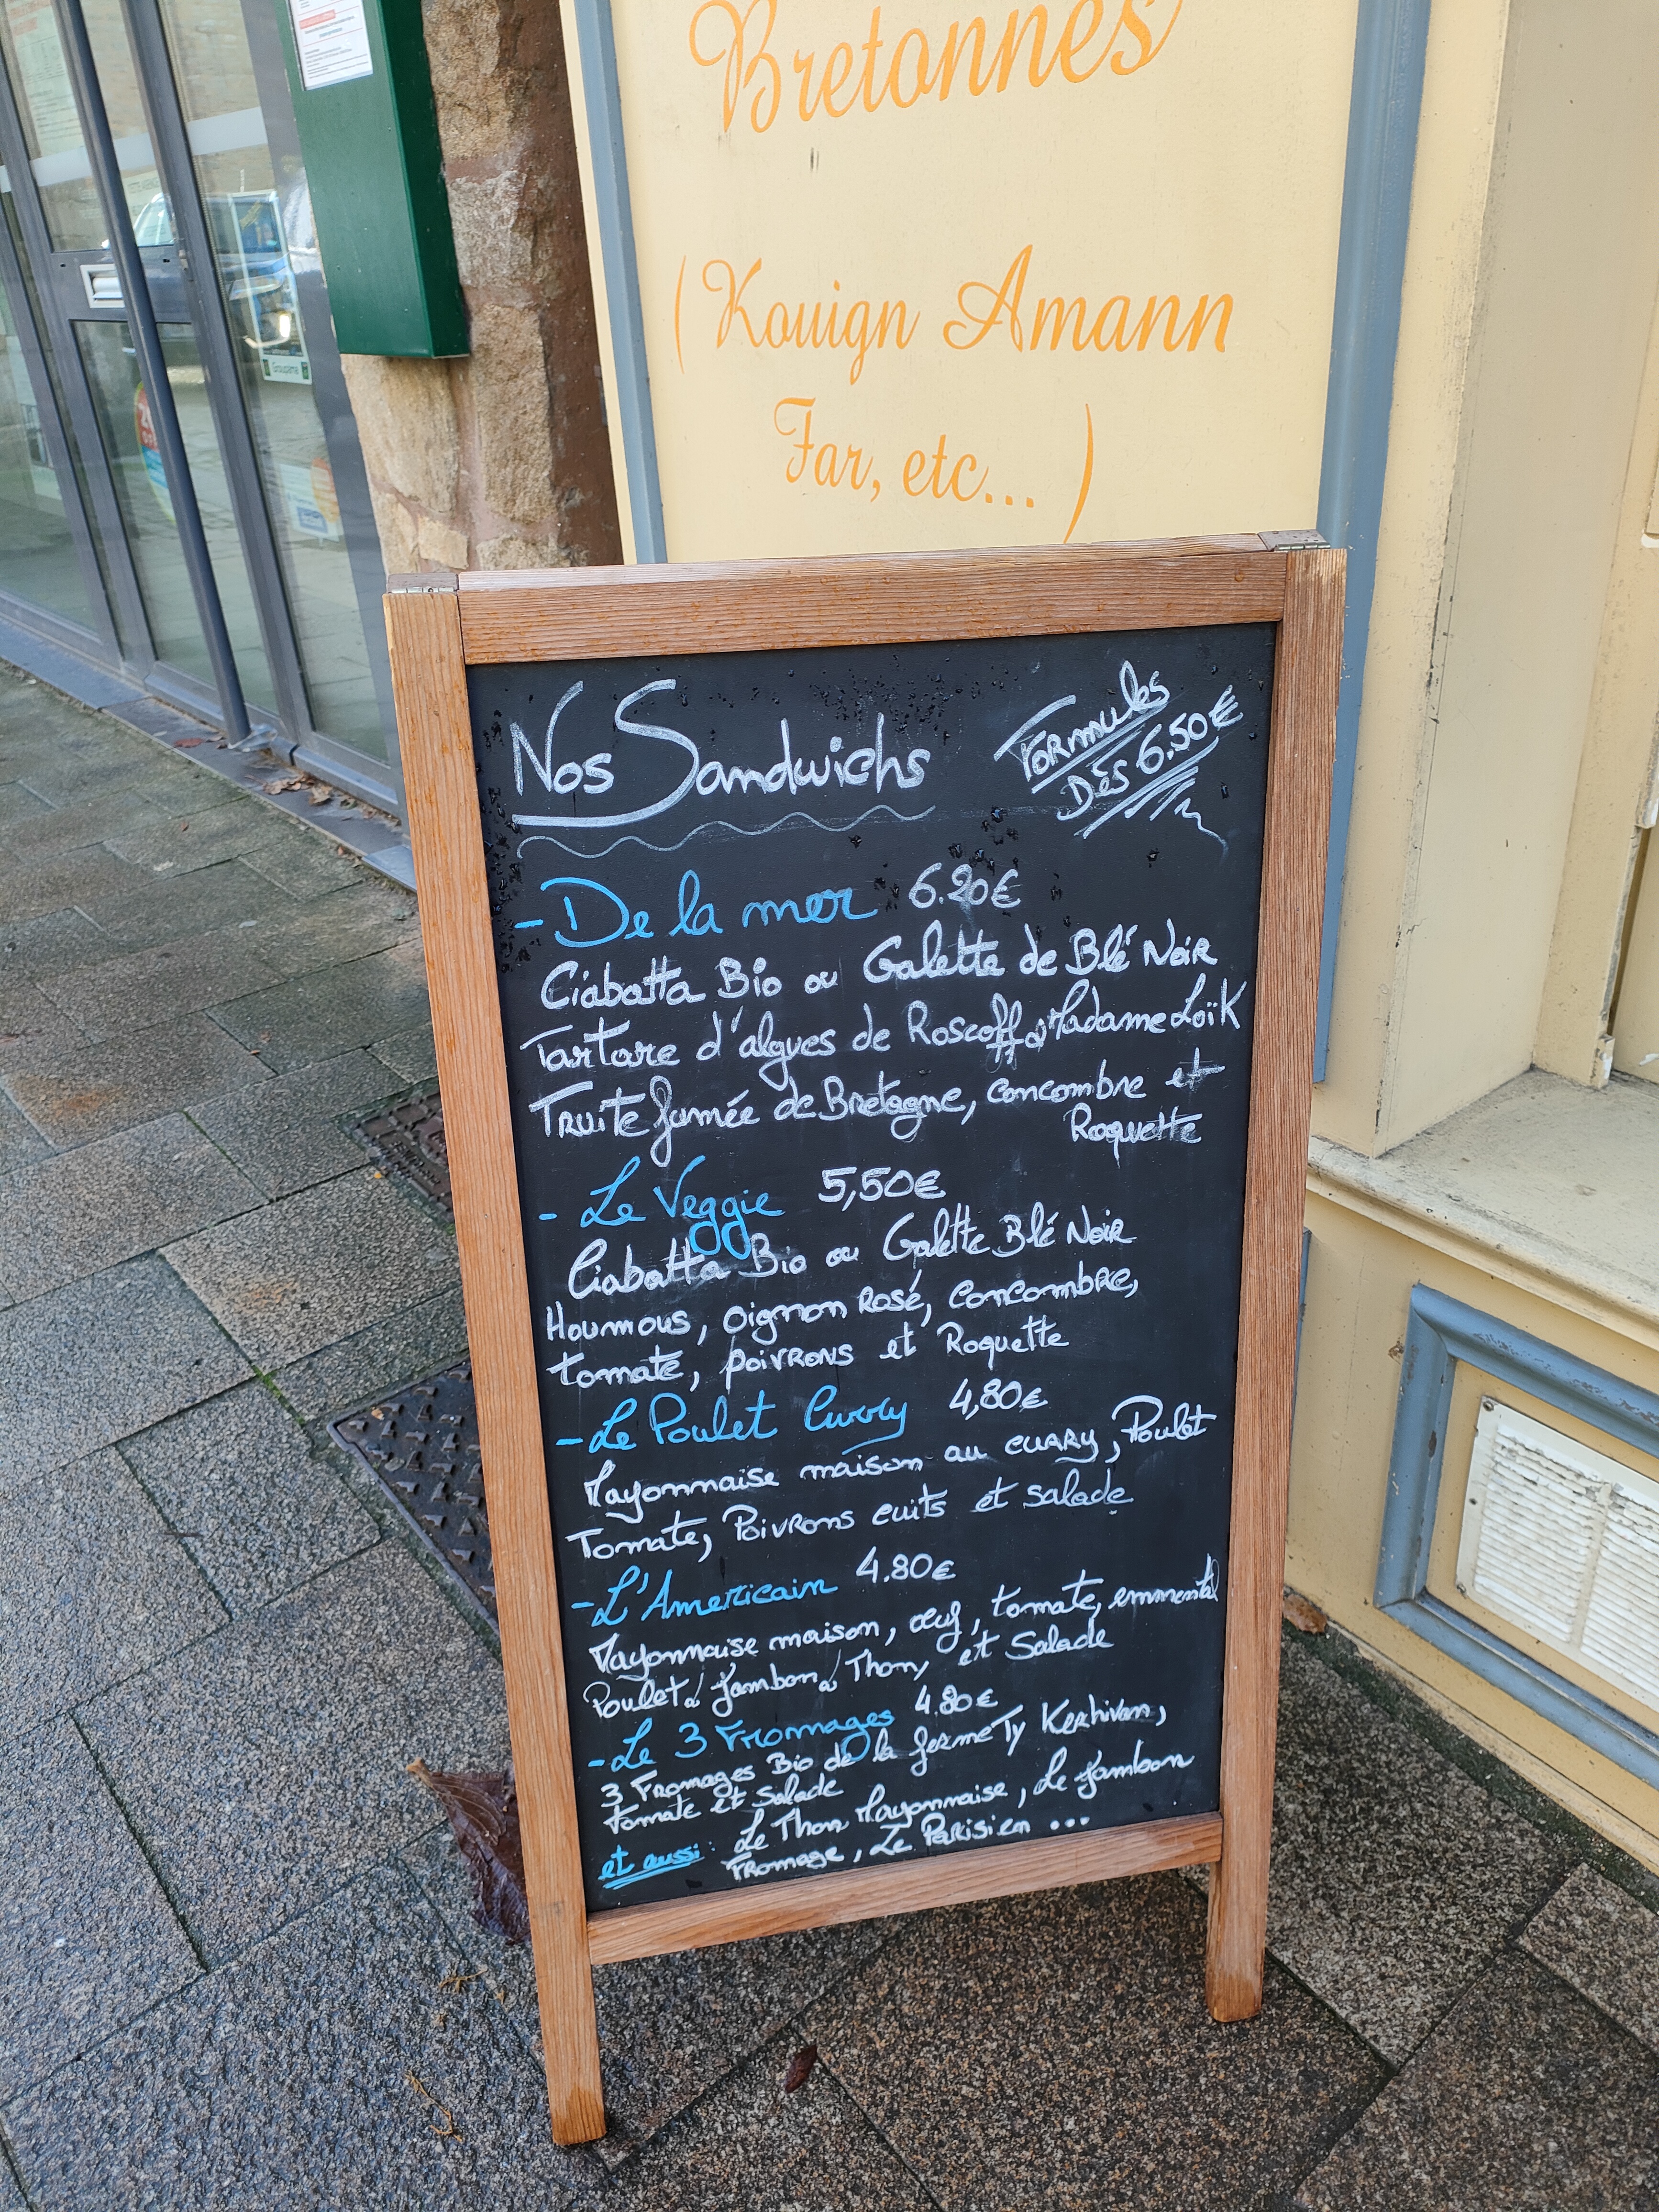 Bretonnes
(Kouign Amann
Far, etc... )
Groupama
Nos Sandwichs
Formules
Dès 6.50€
- De la mer 6.20€
Ciabatta Bio ou Galette de Blé Noir
Tartare d'algues de Roscoff, Madame Loïk
Truite fumée de Bretagne, concombre et
Roquette
- Le Veggie 5,50€
Ciabatta Bio ou Galette Blé Noir
Houmous, oignon Rosé, concombre,
tomate, poivrons et Roquette
- Le Poulet Curry 4,80€
Mayonnaise maison au curry, Poulet
Tomate, Poivrons cuits et salade
- L'Americain 4.80€
Mayonnaise maison, œuf, tomate, emmental
Poulet / jambon / Thon, et Salade
- Le 3 Fromages 4.80€
3 Fromages Bio de la ferme Ty Kerhivan,
tomate et Salade
et aussi : Le Thon Mayonnaise, Le jambon
Fromage, Le Parisien ...